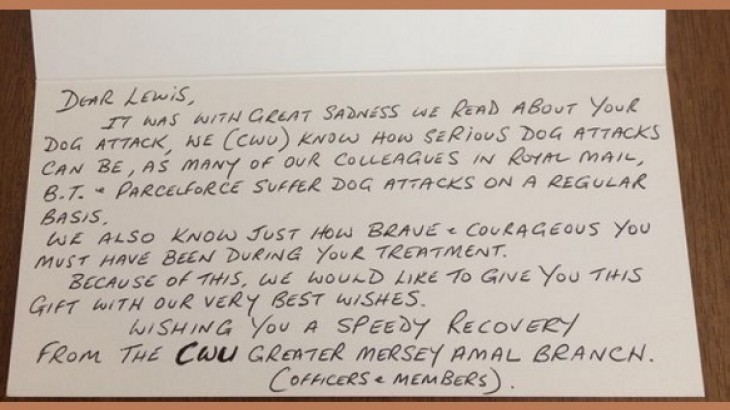 DEAR LEWIS,
IT WAS WITH GREAT SADNESS WE READ ABOUT YOUR
DOG ATTACK, WE (CWU) KNOW HOW SERIOUS DOG ATTACKS
CAN BE, AS MANY OF OUR COLLEAGUES IN ROYAL MAIL,
B.T. & PARCELFORCE SUFFER DOG ATTACKS ON A REGULAR
BASIS.
WE ALSO KNOW JUST HOW BRAVE & COURAGEOUS YOU
MUST HAVE BEEN DURING YOUR TREATMENT.
BECAUSE OF THIS, WE WOULD LIKE TO GIVE YOU THIS
GIFT WITH OUR VERY BEST WISHES.
WISHING YOU A SPEEDY RECOVERY
FROM THE CWU GREATER MERSEY AMAL BRANCH.
(OFFICERS & MEMBERS).